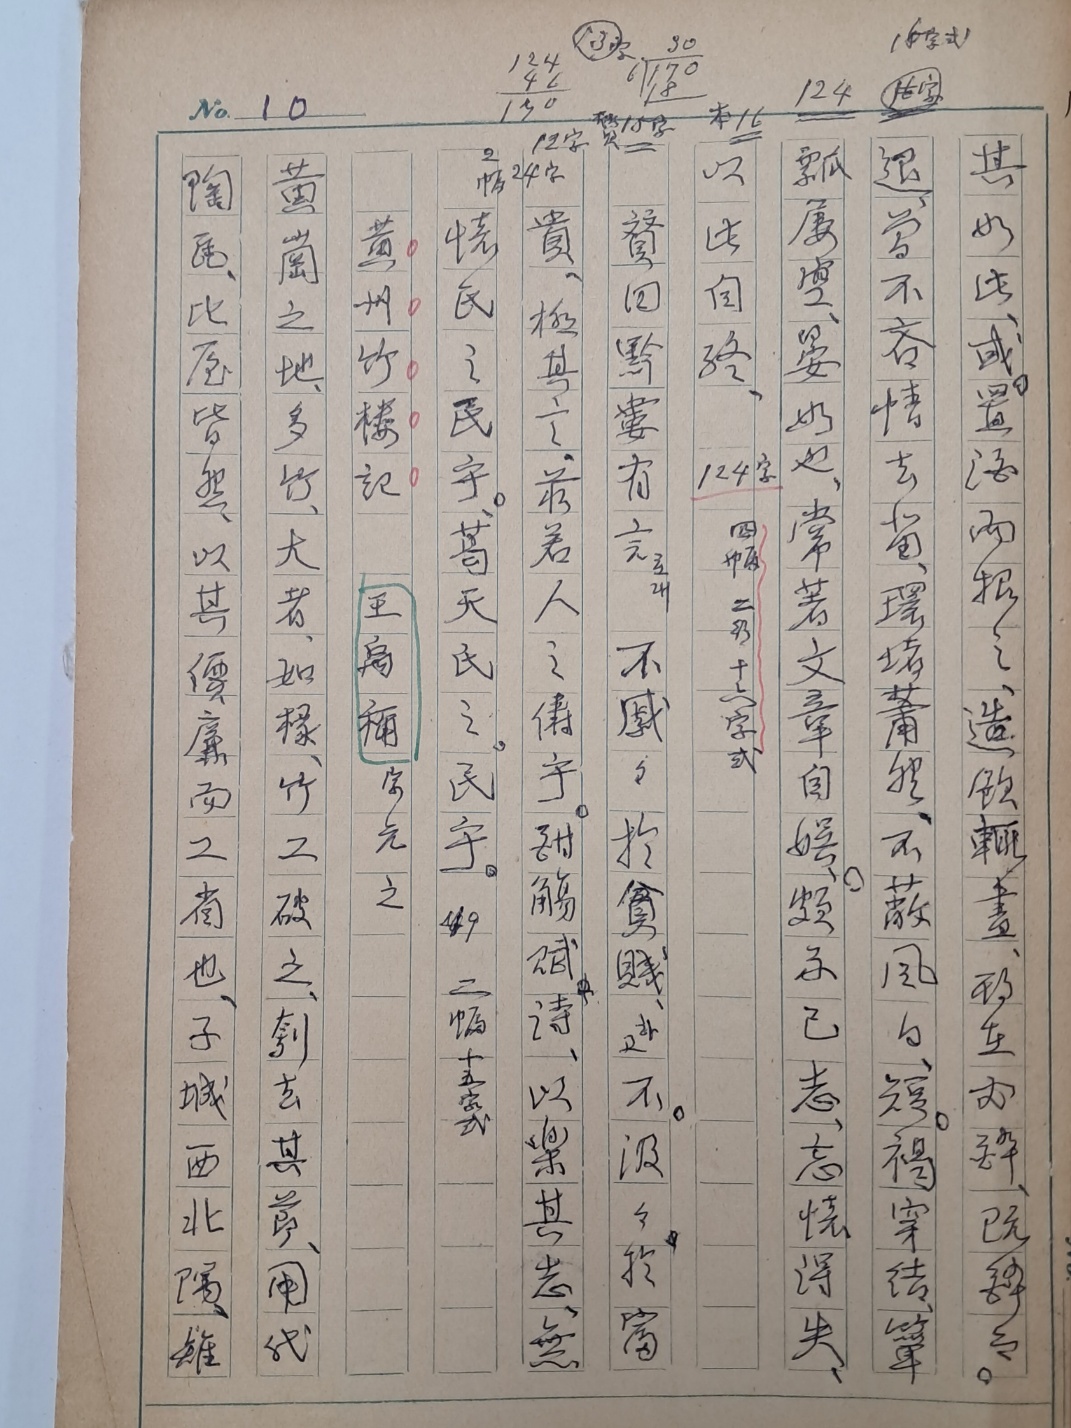 No. 10
16字式
16字
124
本16
13字
30
6 170
18
124
46
170
贊15字
12字
24字
2幅
其如此、或置酒而招之、造飲輒盡、期在必醉、既醉而
退、曾不吝情去留、環堵蕭然、不蔽風日、短褐穿結、簞
瓢屢空、晏如也、常著文章自娛、頗示己志、忘懷得失、
以此自終、
124字
四幅 二 十六字式
贊曰黔婁有言 不戚々於貧賤、不汲々於富
貴、極其言、茲若人之儔乎。酣觴賦詩、以樂其志、無
懷氏之民乎、葛天氏之民乎。 49 二幅 十五字式
黃州竹樓記 王禹稱 字元之
黃岡之地、多竹、大者、如椽、竹工破之、刳去其節、用代
陶瓦、比屋皆然、以其價廉而工省也、子城西北隅、雉